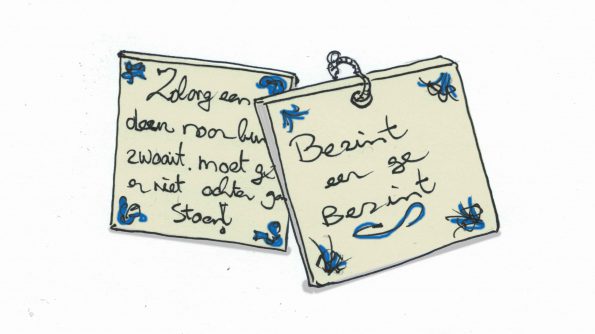 Zolang een
deur naar
zwaait. moet ge
er niet achter
staan!
Bezint
eer ge
Bezint